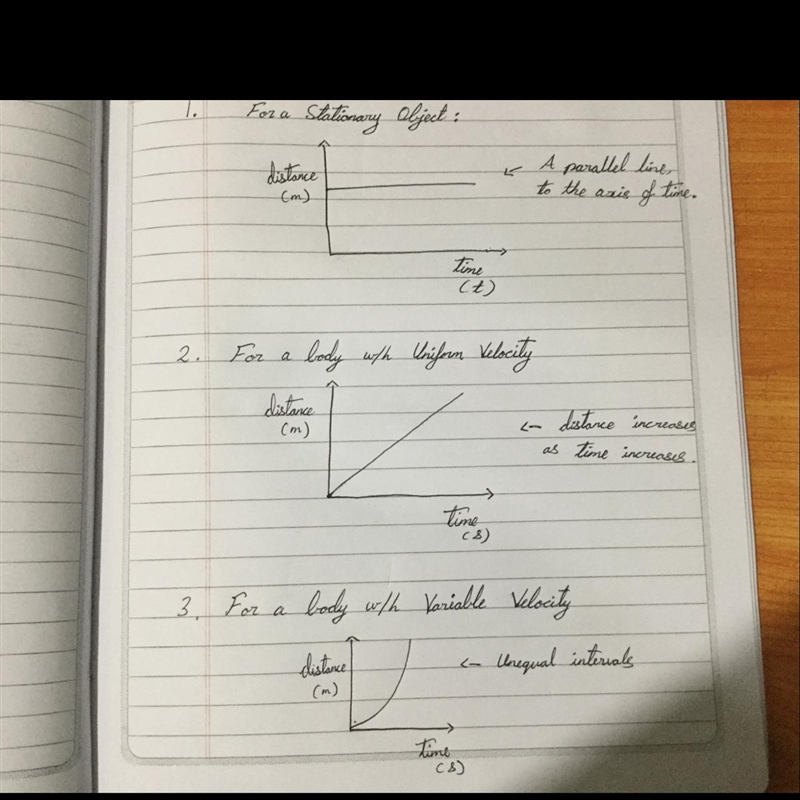 1. For a Stationary Object:
distance
(m)
← A parallel line,
to the axis of time.
time
(t)
2. For a body w/h Uniform Velocity
distance
(m)
← distance increases
as time increases.
time
(s)
3. For a body w/h Variable Velocity
distance
(m)
← Unequal intervals
time
(s)